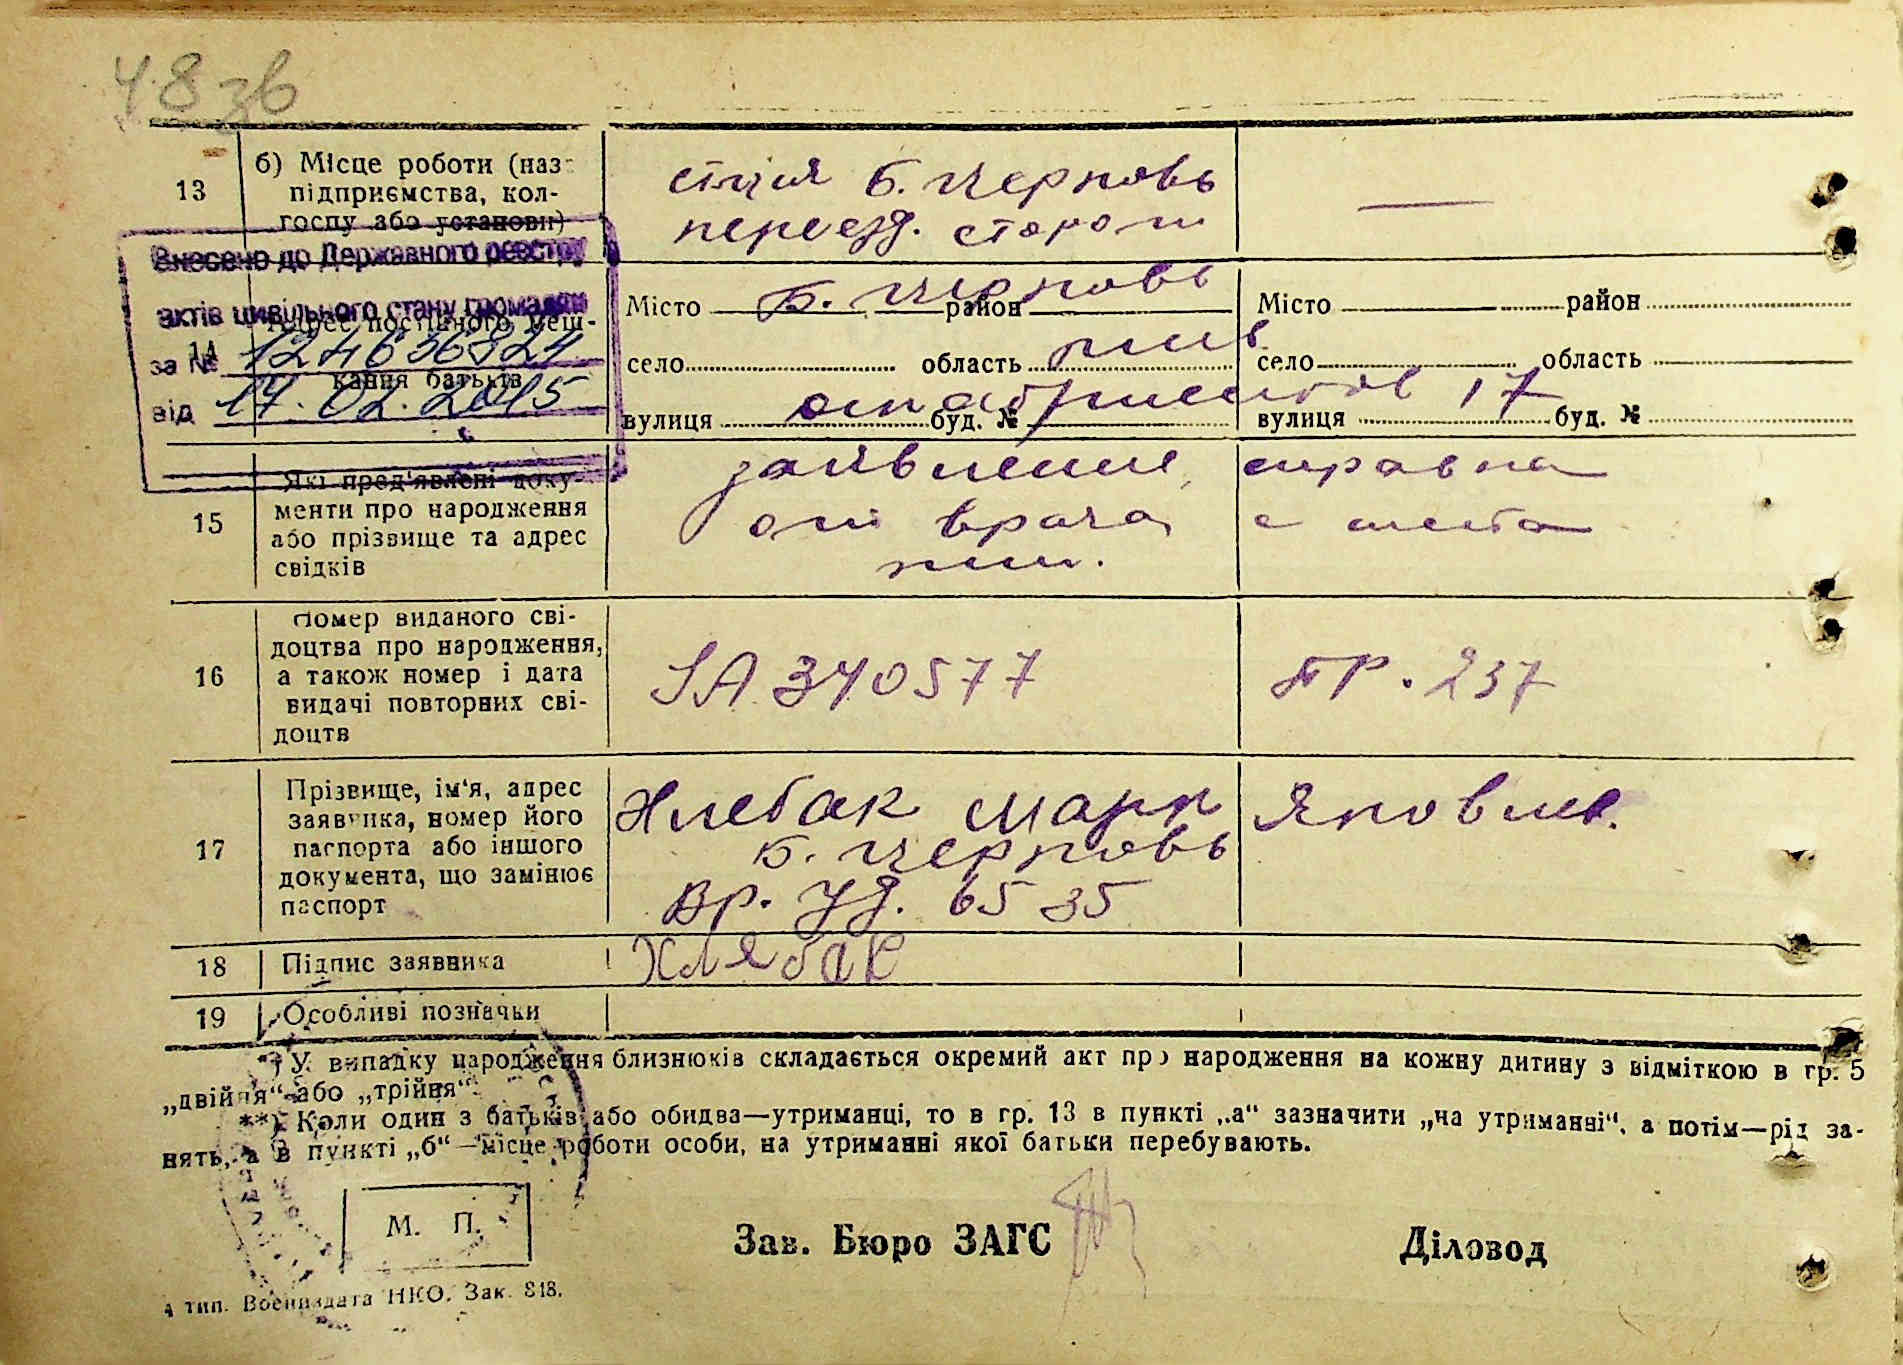 48 зв
13
б) Місце роботи (наз-
підприємства, кол-
госпу або установи)
Б. Церковь
переезд. сторож
Внесено до Державного реєстру
актів цивільного стану громадян
за № 124636824
від 17.02.2015
14
Адрес постійного меш-
кання батьків
Місто Б. Церковь район
село область киев
вулиця октябрьская 17 буд. №
Місто район
село область
вулиця буд. №
15
Які пред'явлені доку-
менти про народження
або прізвище та адрес
свідків
заявление, справка
от врача с места
жит.
16
Номер виданого сві-
доцтва про народження,
а також номер і дата
видачі повторних сві-
доцтв
ЯА 340577
ПР. 237
17
Прізвище, ім'я, адрес
заявника, номер його
паспорта або іншого
документа, що замінює
паспорт
Хлебак Марк Яковлев.
Б. Церковь
Вр. уд. 6535
18
Підпис заявника
Хлябак
19
Особливі позначки
*) У випадку народження близнюків складається окремий акт про народження на кожну дитину з відміткою в гр. 5
„двійня“ або „трійня“
**) Коли один з батьків або обидва—утриманці, то в гр. 13 в пункті „а“ зазначити „на утриманні“, а потім—рід за-
нять, а в пункті „б“—місце роботи особи, на утриманні якої батьки перебувають.
М. П.
Зав. Бюро ЗАГС
Діловод
4 тип. Воениздата НКО. Зак. 818.